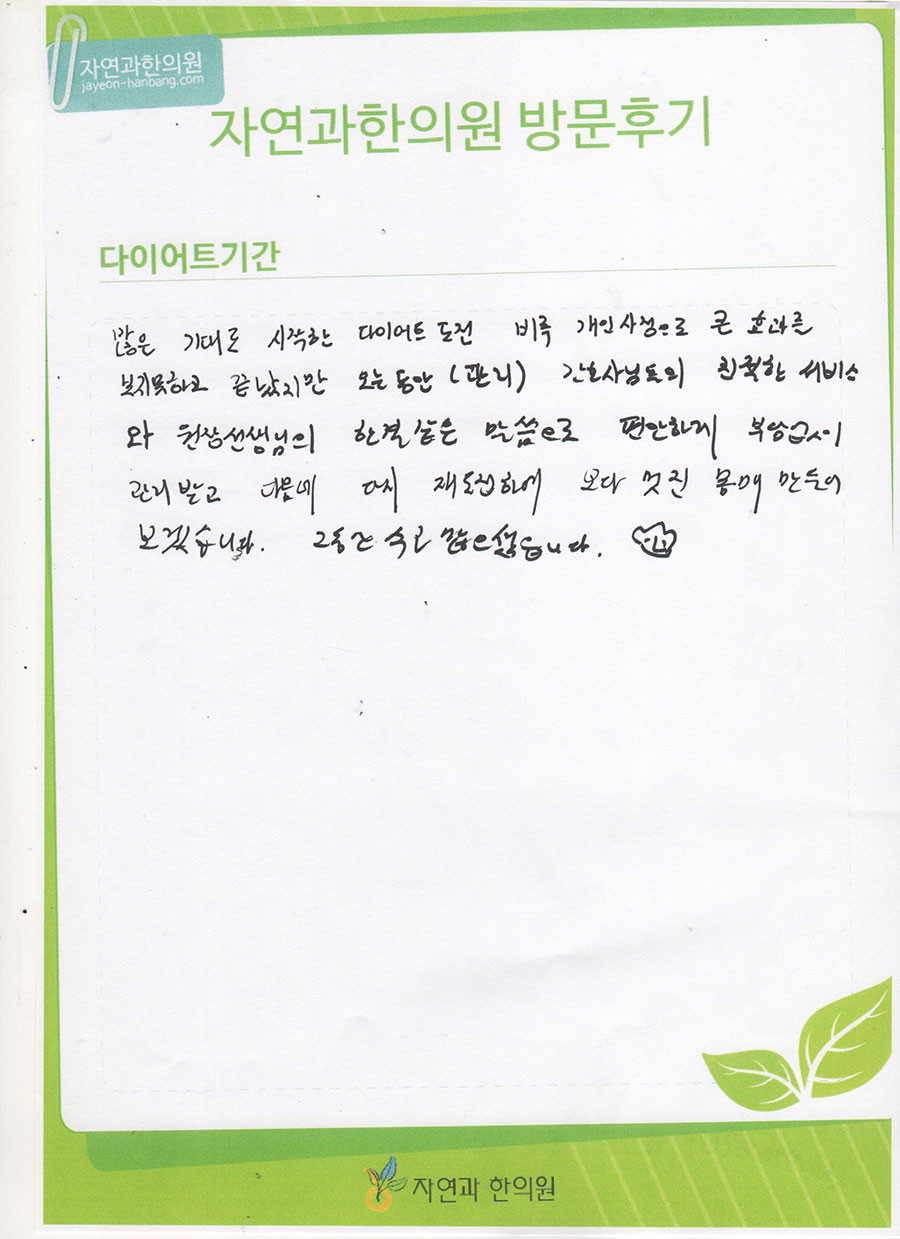 자연과한의원
jayeon-hanbang.com
자연과한의원 방문후기
다이어트기간
많은 기대로 시작한 다이어트 도전 비록 개인사정으로 큰 효과를
보지못하고 끝났지만 오는동안 (관리) 간호사님들의 친절한 서비스
와 원장선생님의 한결같은 말씀으로 편안하게 부담없이
관리받고 다음에 다시 재도전하여 보다 멋진 몸매 만들어
보겠습니다. 그동안 수고 많으셨습니다.
자연과 한의원